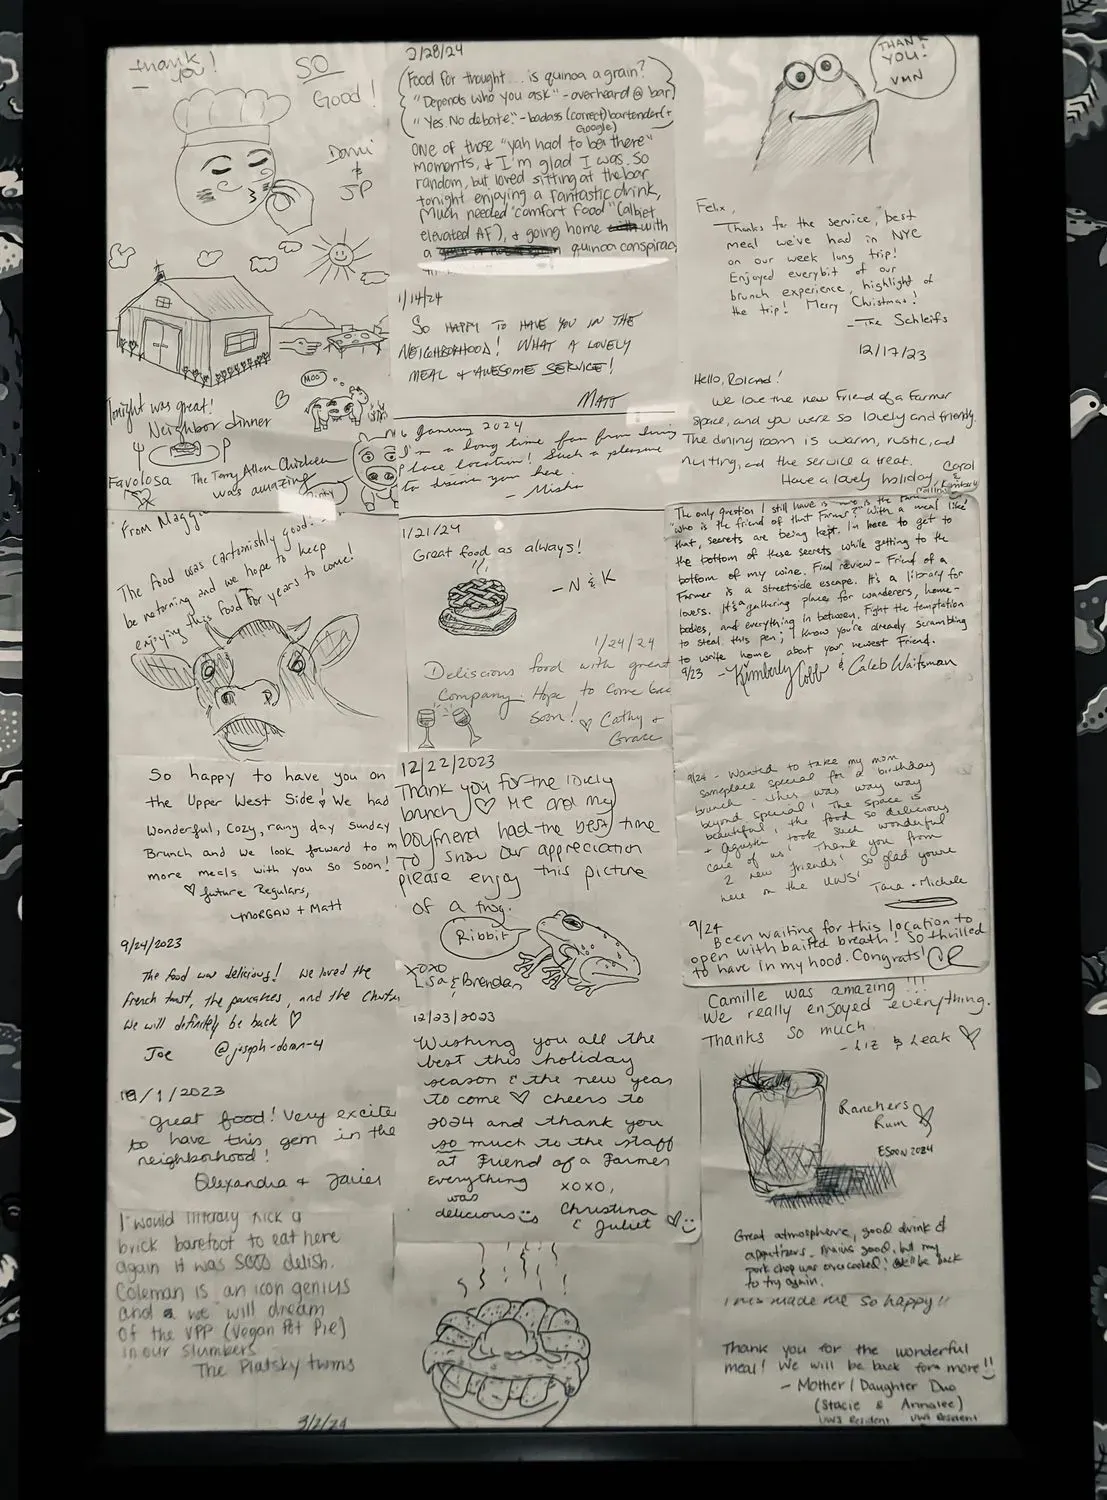 thank you!
SO
Good!
Danni
&
JP
Moo
Tonight was great!
Neighbor dinner
Favolosa
The Tony Allen Chicken
was amazing
From Maggie
The food was cartoonishly good!
be returning and we hope to keep
enjoying this food for years to come!
So happy to have you on
the Upper West Side! We had
Wonderful, Cozy, rainy day Sunday
Brunch and we look forward to
more meals with you so soon!
♡ future Regulars,
MORGAN + Matt
9/24/2023
The food was delicious! We loved the
french toast, the pancakes, and the
We will definitely be back ♡
Joe
/1/2023
great food! Very excite
to have this gem in the
neighborhood!
Alexandra + Javier
I would literally kick a
brick barefoot to eat here
again it was SOOO delish.
Coleman is an icon genius
and we will dream
of the VPP (Vegan Pot Pie)
in our slumbers
The Platsky twins
3/2/24
2/28/24
(Food for thought... is quinoa a grain?
"Depends who you ask" - overheard @ bar
"Yes. No debate." - badass (correct) bartender (+
Google)
one of those "yah had to be there"
moments, & I'm glad I was. So
random, but loved sitting at the bar
tonight enjoying a fantastic drink,
Much needed "comfort food" (albiet
elevated AF), & going home with
a quinoa conspirac
1/14/24
SO HAPPY TO HAVE YOU IN THE
NEIGHBORHOOD! WHAT A LOVELY
MEAL & AWESOME SERVICE!
MATT
6 January 2024
I'm a long time fan from
place location! Such a pleasure
to discover you here.
- Misha
1/21/24
Great food as always!
- N & K
1/24/24
Deliscious food with great
company. Hope to come bac
soon! ♡ Cathy &
Grace
12/22/2023
Thank you for the lovely
brunch ♡ Me and my
boyfriend had the best time
TO show our appreciation
please enjoy this picture
of a frog.
Ribbit
XOXO
Lisa & Brendan
12/23/2023
Wishing you all the
best this holiday
season & the new year
to come ♡ cheers to
2024 and thank you
so much to the staff
at Friend of a Farmer
everything
was
delicious
XOXO,
Christina
& Juliet ♡
THANK
YOU!
VMN
Felix,
Thanks for the service, best
meal we've had in NYC
on our week long trip!
Enjoyed everybit of our
brunch experience, highlight of
the trip! Merry Christmas!
- The Schleifs
12/17/23
Hello, Roland!
We love the new Friend of a Farmer
space, and you were so lovely and friendly.
The dining room is warm, rustic, and
inviting, and the service a treat.
Have a lovely holiday,
Carol
&
Kimberly
Collins
The only question I still have is
"who is the friend of that Farmer?" With a meal like
that, secrets are being kept. I'm here to get to
the bottom of these secrets while getting to the
bottom of my wine. Final review - Friend of a
Farmer is a streetside escape. It's a library for
lovers. It's a gathering place for wanderers, home-
bodies, and everything in between. Fight the temptation
to steal this pen; I know you're already scrambling
to write home about your newest Friend.
9/23 - Kimberly Cobb & Caleb Waitsman
9/24 - Wanted to take my mom
someplace special for a birthday
brunch - this was way way
beyond special! The space is
beautiful, the food so delicious
+ Agustin took such wonderful
care of us! Thank you from
2 new friends! So glad you're
here on the UWS!
Tara + Michele
9/24
Been waiting for this location to
open with baited breath! So thrilled
to have in my hood. Congrats!
Camille was amazing!!!
We really enjoyed everything.
Thanks so much
- Liz & Leah ♡
Ranchers
Rum
2024
Great atmosphere, good drink &
appetizers. Mains good, but my
pork chop was overcooked! I'll be back
to try again.
This made me so happy!!
Thank you for the wonderful
meal! We will be back for more!!
- Mother / Daughter Duo
(Stacie & Annalee)
UWS Resident UWS Resident